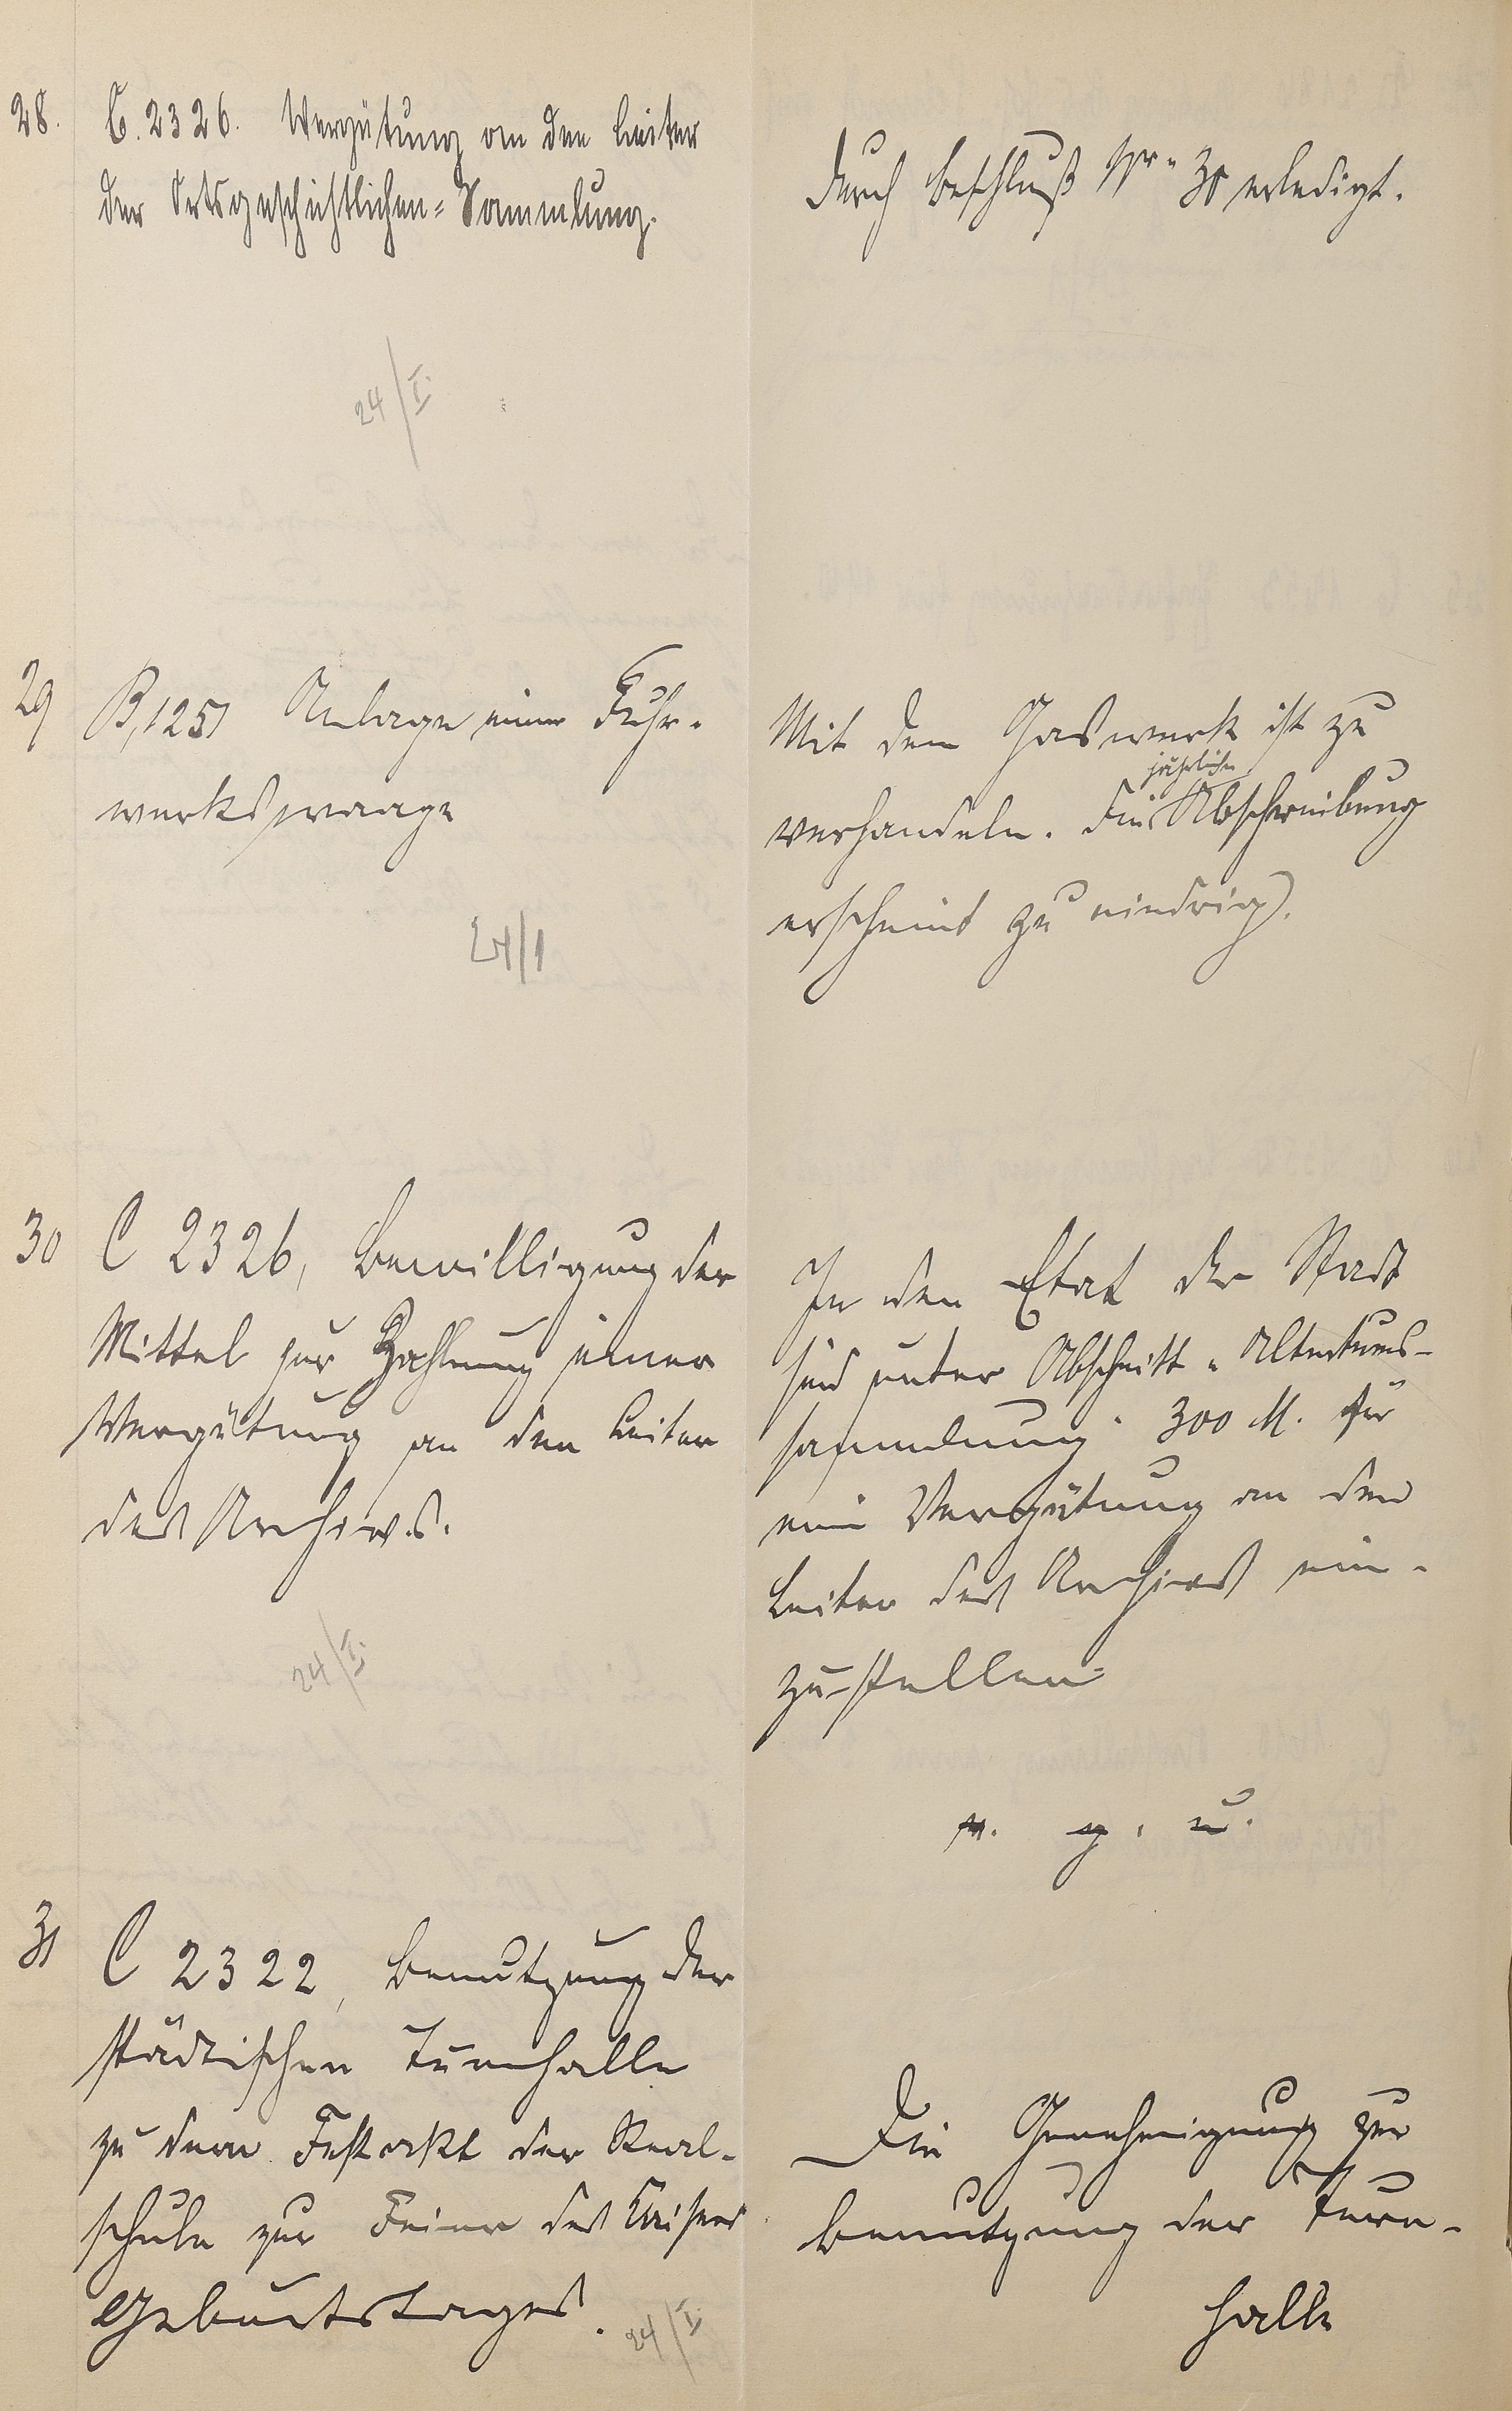 28.
C. 2326. Vergütung an den Leiter
der Ortsgeschichtlichen-Sammlung.
24/I.
Durch Beschluß Nr. 30 erledigt.
29
B, 1251 Anlage einer Fuhr-
werkswaage
24/1
Mit dem Gaswerk ist zu
verhandeln. Die jährliche Abschreibung
erscheint zu niedrig).
30
C 2326, Bewilligung der
Mittel zur Zahlung einer
Vergütung an den Leiter
des Archivs.
24/I.
In den Etat der Stadt
sind unter Abschnitt „Altertums-
sammlung“ 300 M. für
eine Vergütung an den
Leiter des Archivs ein-
zustellen
v. g. u.
31
C 2322, Benutzung der
städtischen Turnhalle
zu dem Festakt der Real-
schule zur Feier des Kaisers
Geburtstages.
24/I.
Die Genehmigung zur
Benutzung der Turn-
halle